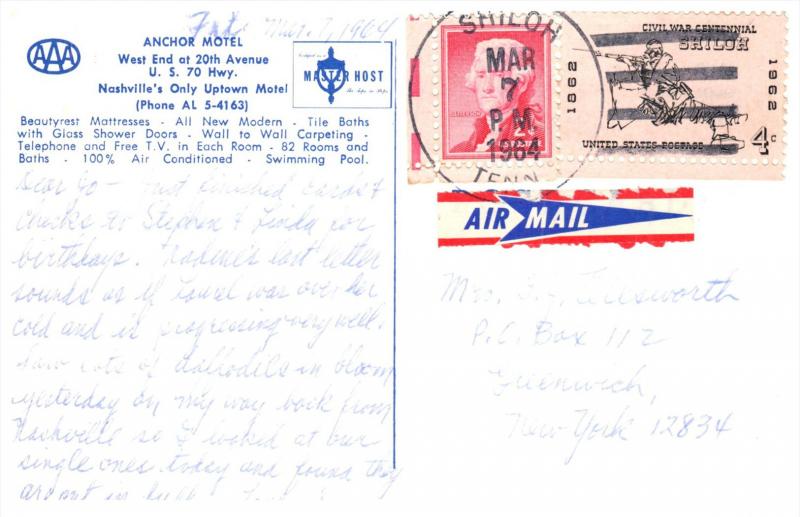 Mar. 7, 1964
AAA
ANCHOR MOTEL
West End at 20th Avenue
U. S. 70 Hwy.
Nashville's Only Uptown Motel
(Phone AL 5-4163)
MASTER HOST
Beautyrest Mattresses - All New Modern - Tile Baths
with Glass Shower Doors - Wall to Wall Carpeting -
Telephone and Free T.V. in Each Room - 82 Rooms and
Baths - 100% Air Conditioned - Swimming Pool.
Dear Jo - Just finished cards &
checks to Stephen & Linda for
birthdays. Nadine's last letter
sounds as if was over her
cold and is progressing very well.
Saw lots of daffodils in bloom
yesterday on my way back from
Nashville so I looked at our
single ones today and found they
are out in
SHILOH
MAR
7
P.M.
1964
TENN
JEFFERSON
2¢
CIVIL WAR CENTENNIAL
SHILOH
1862
1962
UNITED STATES POSTAGE
4c
AIR MAIL
Mrs. Ellsworth
P.O. Box 112
Greenwich,
New York 12834